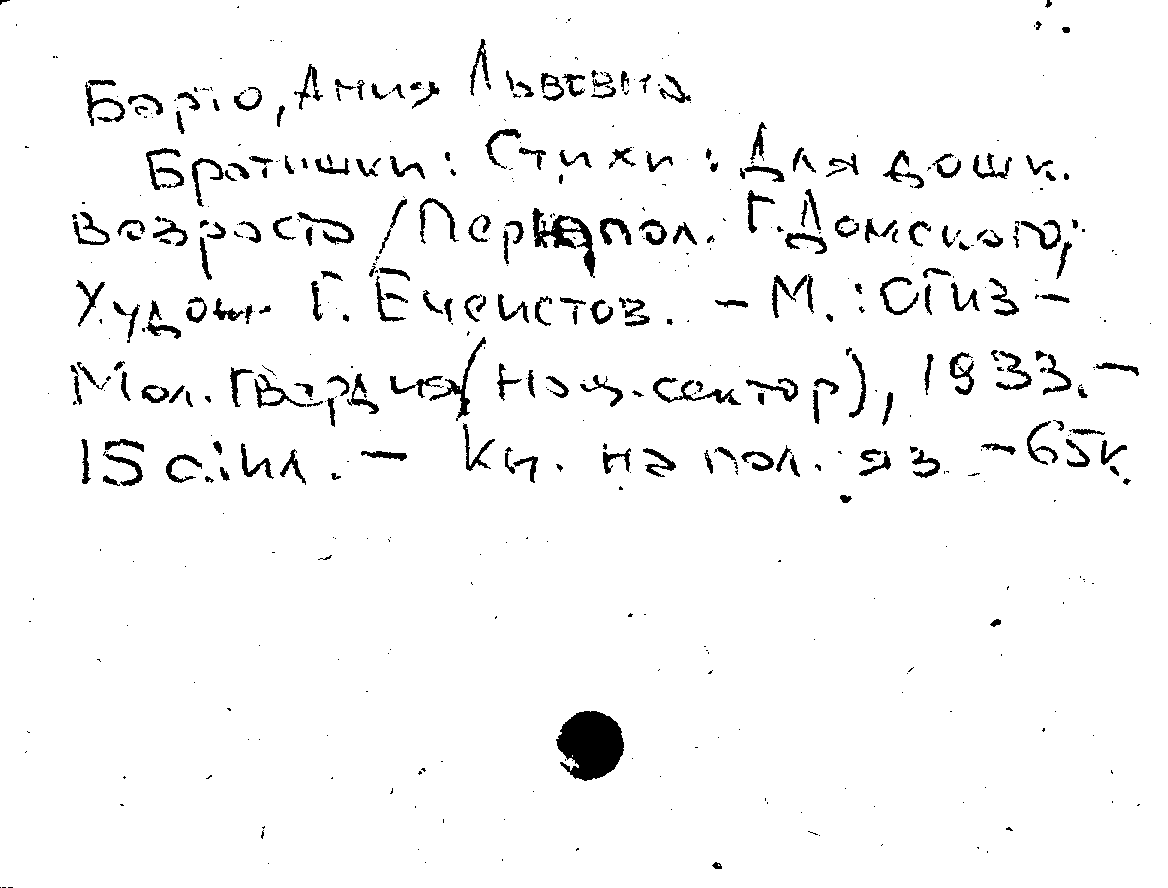 Барто, Агния Львовна
Братишки: Стихи: Для дошк.
возраста / Пер. на пол. Г. Домского;
Худож. Г. Ечеистов. - М.: ОГИЗ -
Мол. Гвардия (Нац. сектор), 1933. -
15 с.: ил. - Кн. на пол. яз. - 65 к.